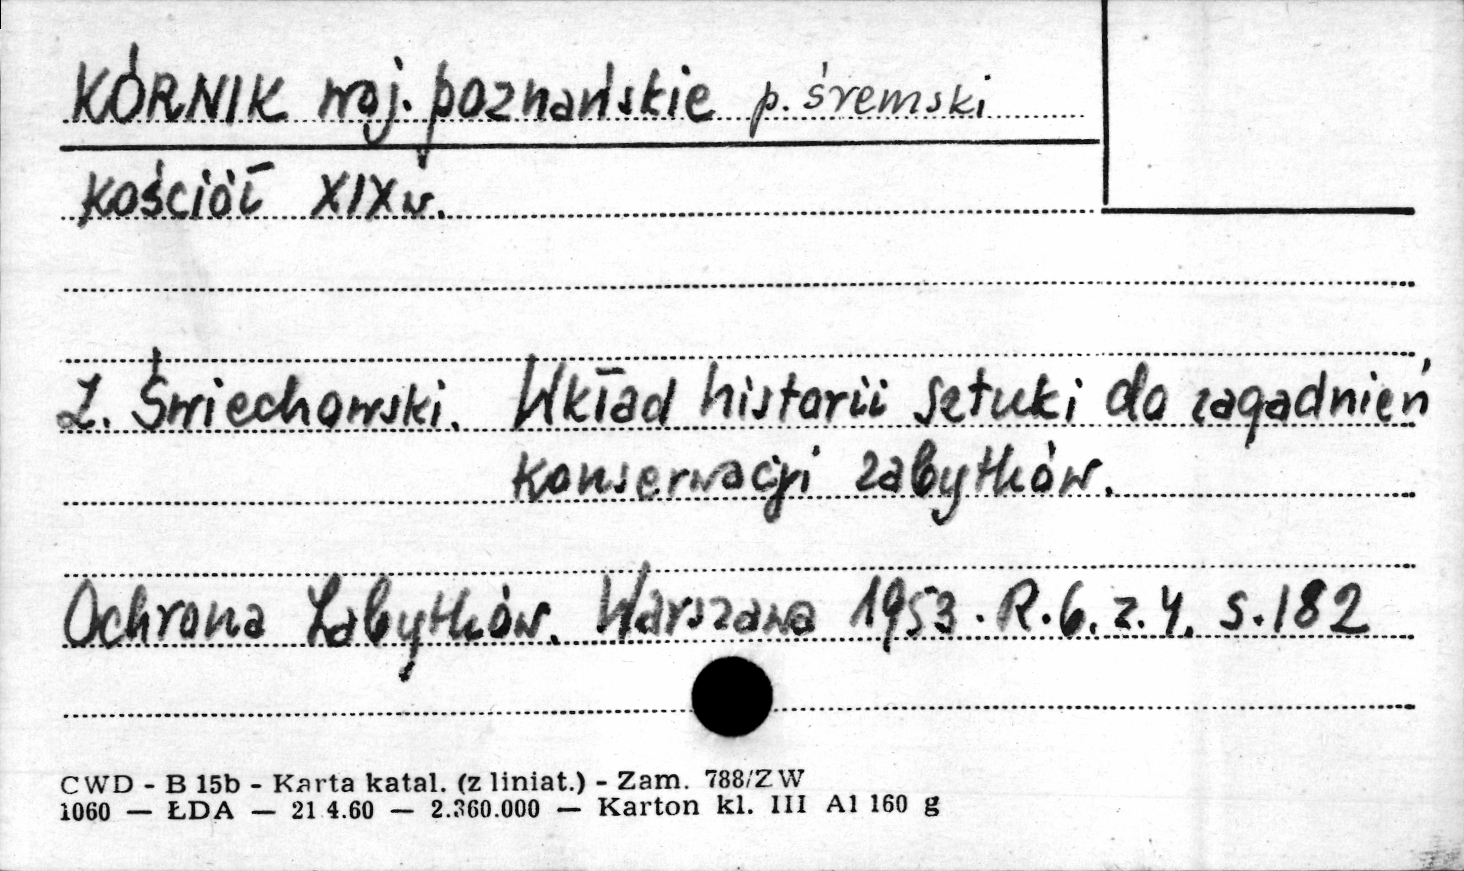 KÓRNIK woj. poznańskie p. śremski
kościół XIX w.
Z. Świechowski. Wkład historii sztuki do zagadnień
konserwacji zabytków.
Ochrona Zabytków. Warszawa 1953. R.6. z.4. s.182
CWD - B 15b - Karta katal. (z liniat.) - Zam. 788/ZW
1060 — ŁDA — 21.4.60 — 2.360.000 — Karton kl. III A1 160 g